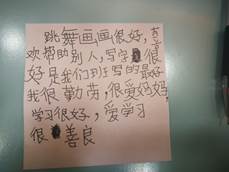 跳舞画画很好,喜
欢帮助别人,写字很
好是我们班写的最好
我很勤劳,很爱妈妈
学习很好,爱学习
很善良